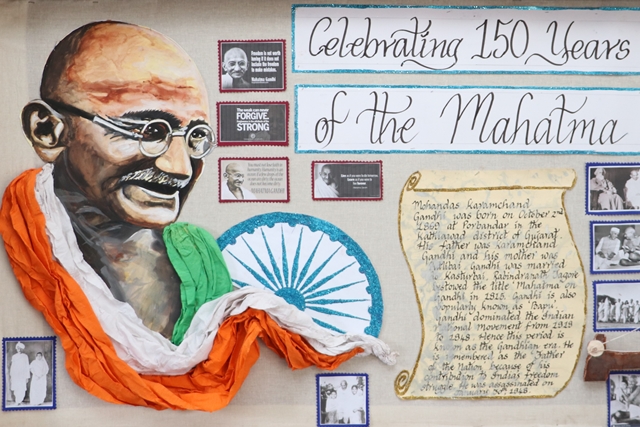 Celebrating 150 Years
of the Mahatma
Freedom is not worth
having if it does not
include the freedom
to make mistakes.
Mahatma Gandhi
FORGIVE.
STRONG
Mohandas Karamchand
Gandhi was born on October 2nd
1869 at Porbandar in the
Kathiawad district of Gujarat
His father was Karamchand
Gandhi and his mother was
Gandhi was married
to Kasturbai. Rabindranath Tagore
bestowed the title 'Mahatma' on
Gandhi in 1915. Gandhi is also
popularly known as 'Bapu'.
Gandhi dominated the Indian
national movement from 1919
to 1948. Hence this period is
known as the Gandhian era. He
is remembered as the 'Father'
of the Nation because of his
contribution to India's freedom
struggle. He was assassinated on
January 30th 1948.